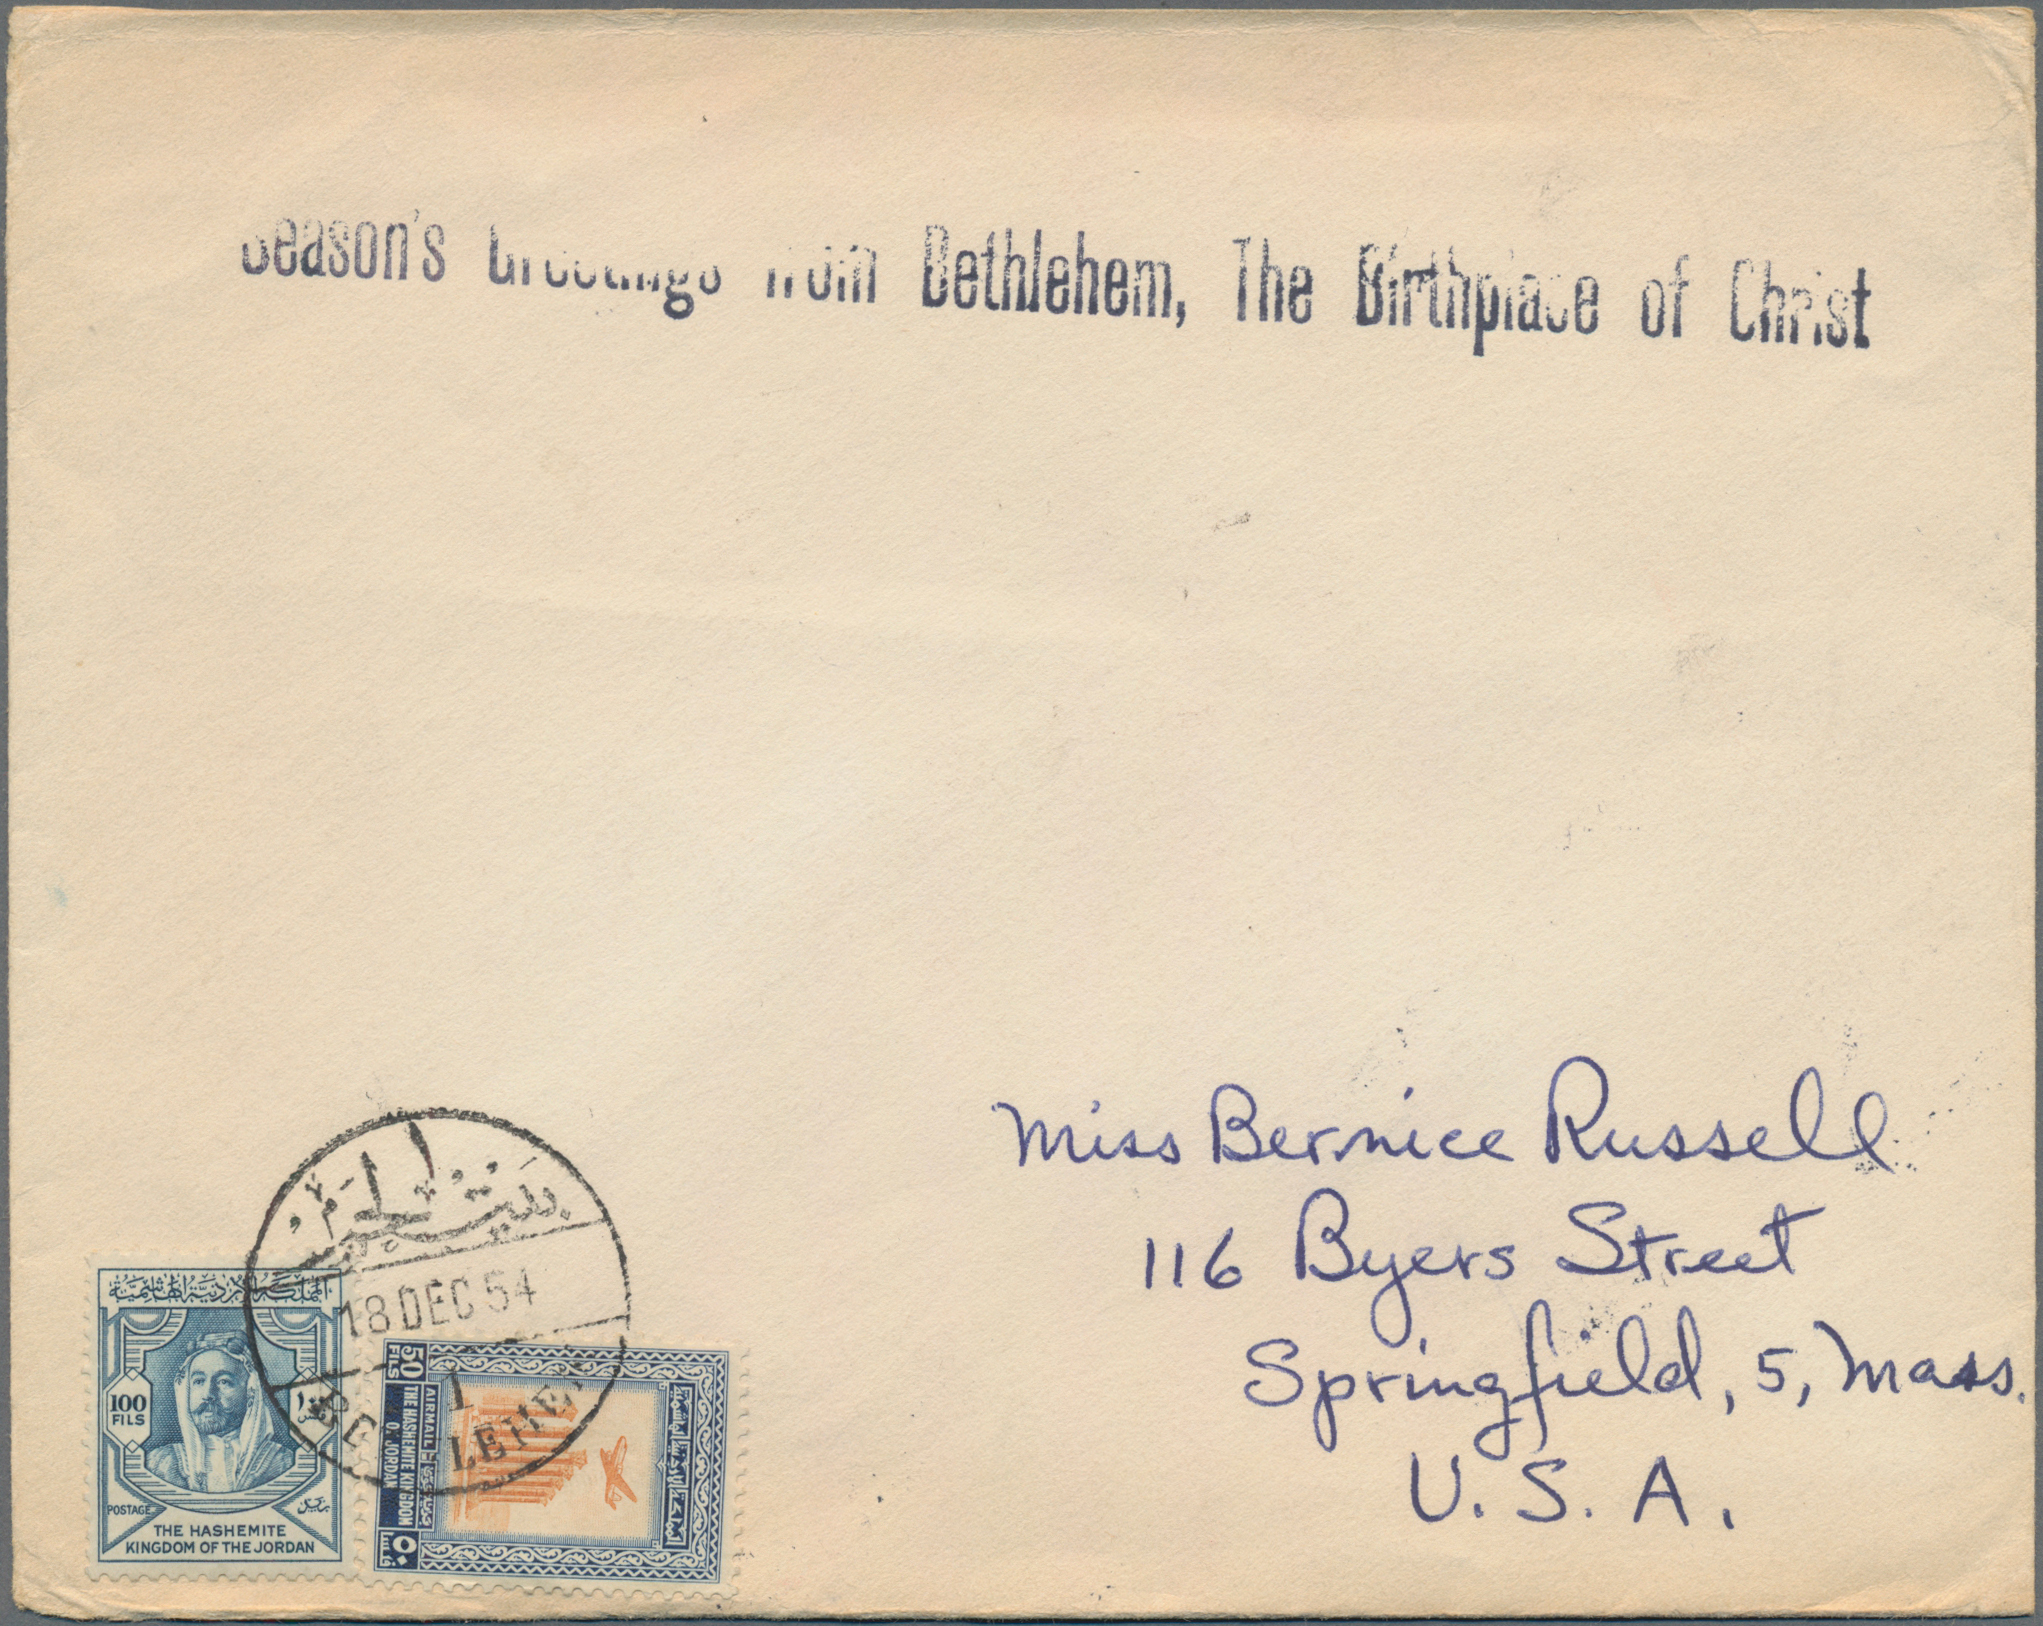 Season's Greetings from Bethlehem, The Birthplace of Christ
Miss Bernice Russell
116 Byers Street
Springfield, 5, Mass.
U. S. A.
بيت لحم
18 DEC 54
1
المملكة الأردنية الهاشمية
100
FILS
POSTAGE
بريد
THE HASHEMITE
KINGDOM OF THE JORDAN
50
FILS
AIRMAIL
THE HASHEMITE KINGDOM
OF JORDAN
المملكة الاردنية الهاشمية
٥٠
فلسا